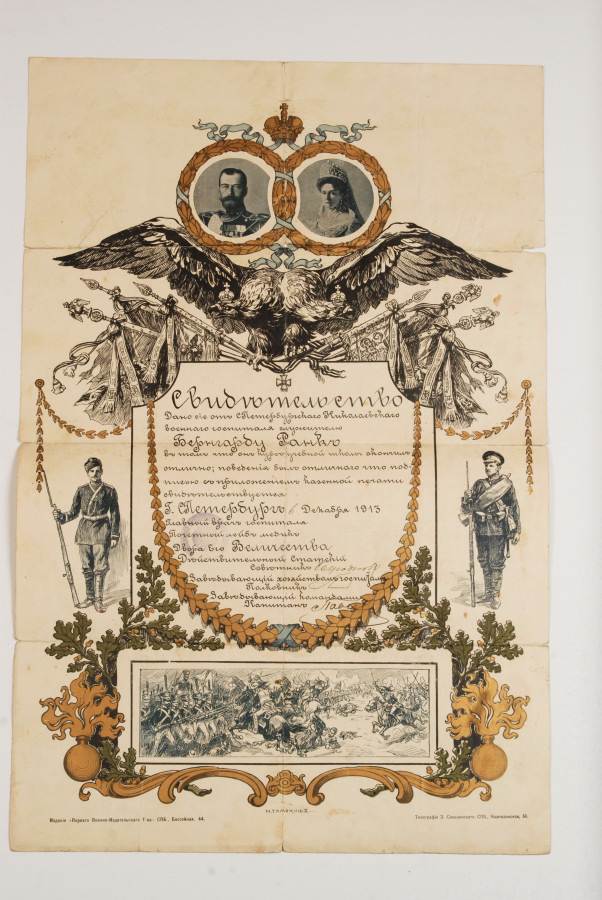 Свидѣтельство
Дано сіе отъ С.Петербургскаго Николаевскаго
военнаго госпиталя служителю
Бернгарду Ранкъ
въ томъ что онъ курсъ учебной школы окончилъ
отлично; поведенія былъ отличнаго что под-
писью съ приложеніемъ казенной печати
свидѣтельствуется
Г. С.Петербургъ 6 Декабря 1913
Главный врачъ госпиталя
Почетный лейбъ медикъ
Двора Его Величества
Дѣйствительный Статскій
Совѣтникъ
Завѣдывающій хозяйствомъ госпиталя
Полковникъ
Завѣдывающій командами
Капитанъ
Изданіе «Перваго Военно-Издательскаго Т-ва» СПБ., Бассейная, 44.